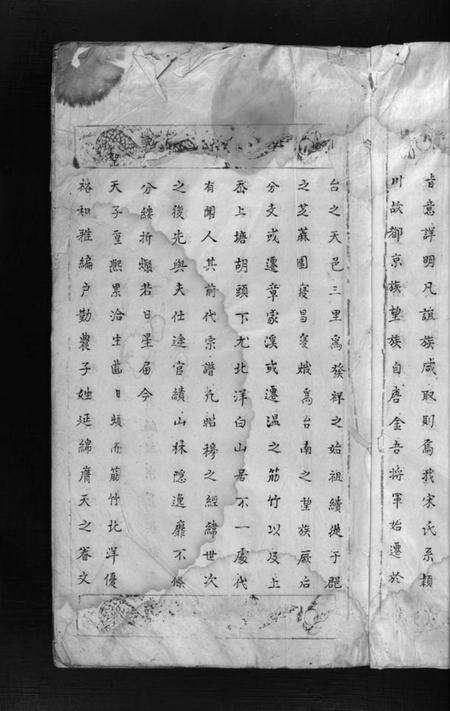 旨意詳明凡誼族咸取則焉我宋氏系頴
川故都京族望族自唐金吾將軍始遷於
台之天邑三里為發祥之始祖續徙于邑
之芝蔴園寖昌寖熾為台南之望族厥后
分支或遷章家溪或遷溫之筋竹以及上
岙上塘胡頭下尤北洋白山居不一處代
有聞人其前代宗譜凡昭穆之經緯世次
之後先與夫仕途官績山林隱逸靡不條
分縷折燦若日星届今
天子重熙累洽生齒日蕃而筋竹北洋優
裕和雅編户勤農子姓延綿膺天之眷文